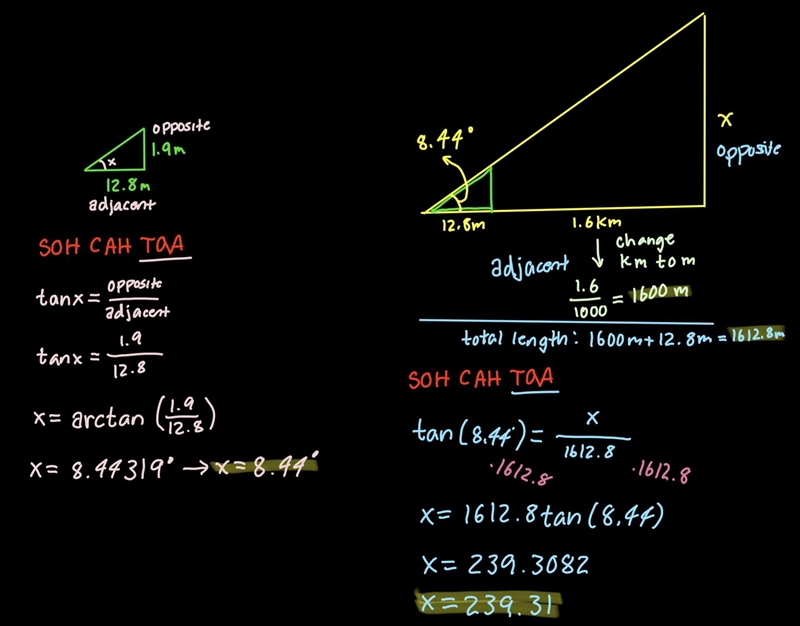 opposite
1.9m
x
12.8m
adjacent
SOH CAH TOA
tanx = opposite
adjacent
tanx = 1.9
12.8
x = arctan (1.9
12.8)
x = 8.44319° → x = 8.44°
8.44°
x
opposite
12.8m
1.6Km
adjacent
↓ change
Km to m
1.6
1000 = 1600 m
total length: 1600m + 12.8m = 1612.8m
SOH CAH TOA
tan(8.44°) = x
1612.8
·1612.8 ·1612.8
x = 1612.8 tan(8.44)
x = 239.3082
x = 239.31